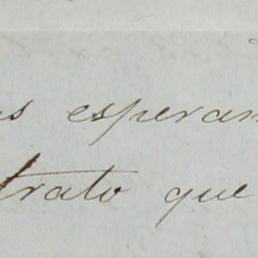 as esperan
trato que